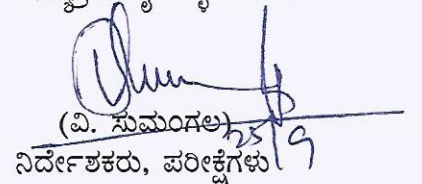 (ವಿ. ಸುಮಂಗಲ)
25/9
ನಿರ್ದೇಶಕರು, ಪರೀಕ್ಷೆಗಳು